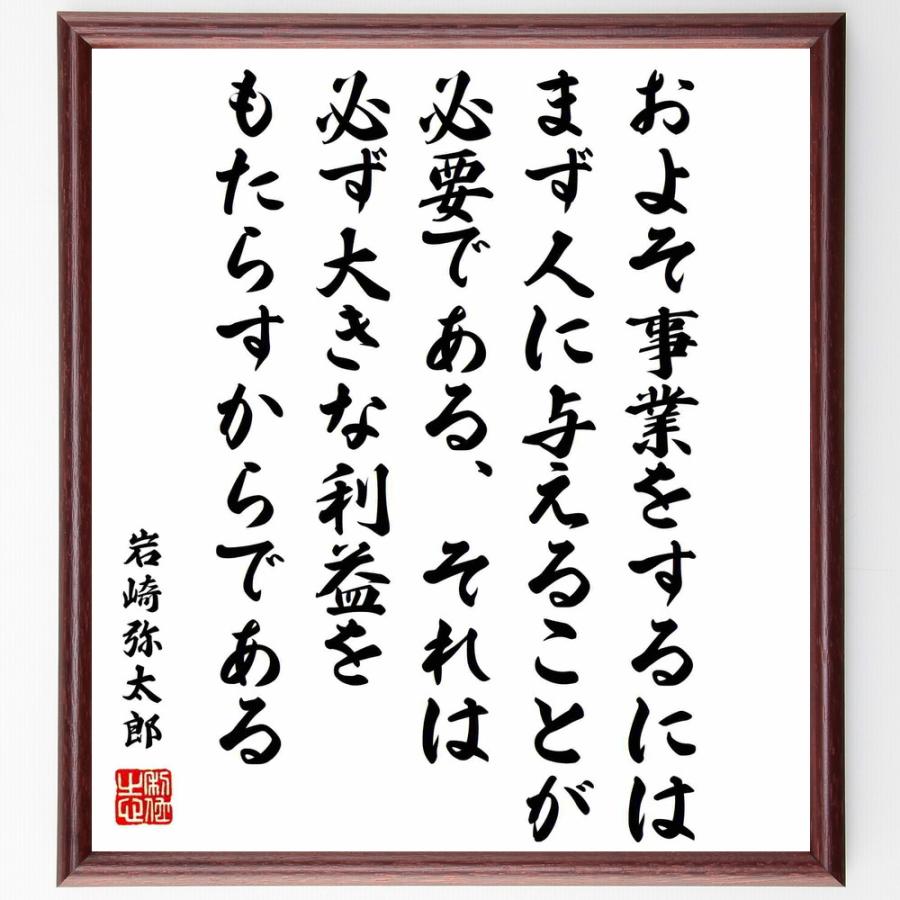 およそ事業をするには
まず人に与えることが
必要である、それは
必ず大きな利益を
もたらすからである
岩崎弥太郎